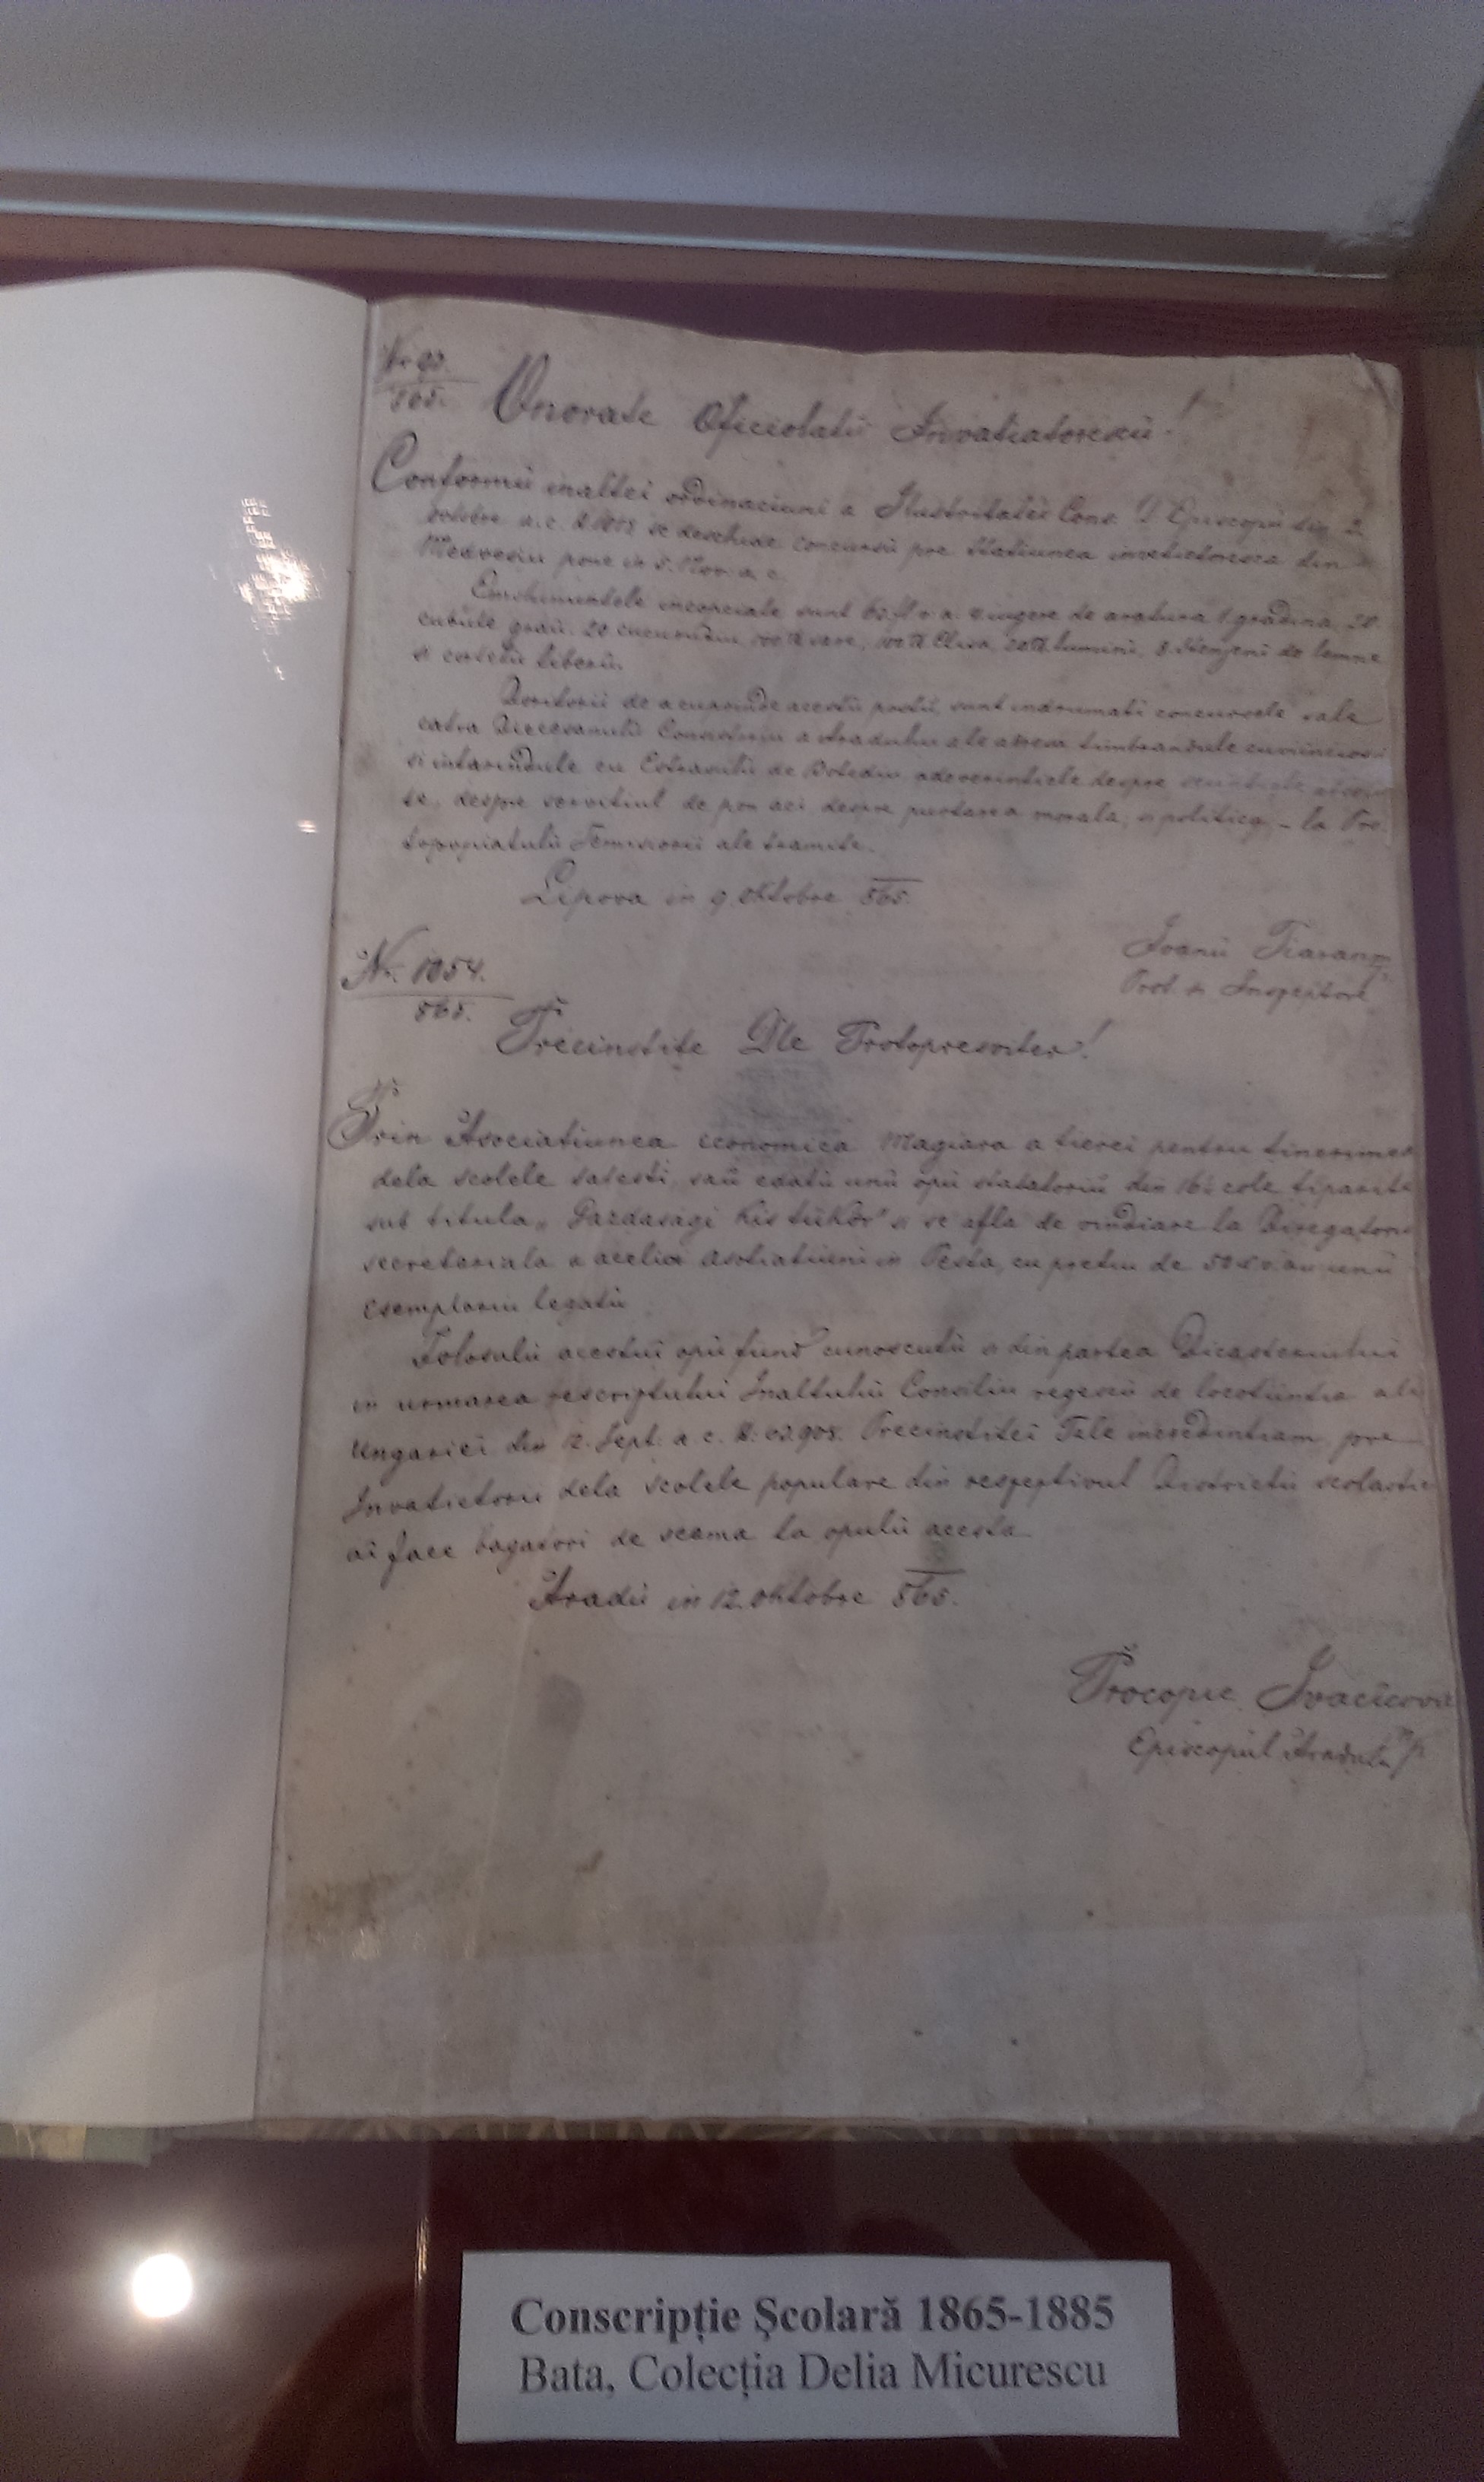 Nr 90.
865.
Onorate Oficiolatu Invatiatorescu!
Conformu inaltei ordinaciuni a Ilustritatei Cons. D Episcopu din 2
octobre a.c. se deschide concursu pre statiunea invetiatoresca din
Medvesiu pone in 5. Nov. a. c.
Emolumintele sunt 63 fl v. a. 4 iugere de aratura 1 gradina, 20
cubule grau. 20 cucurudiu, 100 ℔ sare, 100 ℔ Clisa, 20 ℔ lumini, 8 stenjeni de lemne
si cortelu liberu.
Doritorii de a cuprinde acestu postu, sunt indrumati concursele sale
catra Diecesanulu Consistoriu a Aradului ale adresa timbrandule
si intarindule cu Estrasulu de Botediu, adeverintiele despre
te, despre servitiul de pon aci despre purtarea morala, si politica, – la Pro
topopiatulu Temisiorii ale tramite.
Lipova in 9. Oktobre 865.
Ioanu Tieranu
Prot. si Inspectore
Nr. 1054.
865.
Precinstite Dle Protopresviter!
Prin Asociatiunea economica Magiara a tierei pentru tinerimea
dela scolele satesti, sau edatu unu opu din 16 cole tiparite
sub titula „Gazdasági Kis tükör" si se afla de vindiare la Diregatoria
secretariala a aceliei asotiatiuni in Pesta, cu pretiu de 50 unu
esemplariu legatu
Folosulu acestui opu fund cunoscutu si din partea Dicasteriului
in urmarea rescriptului Inaltului Consiliu regescu de locotiintia ali
Ungariei din 12. Sept. a. c. Precinstitei Tale incredintiam, pre
Invatietorii dela scolele populare din respeptivul Districtu scolastic
ai face bagatori de seama la opulu acesta
Aradu in 12. Oktobre 865.
Procopie Ivacicovici
Episcopul Aradului
Conscripție Școlară 1865-1885
Bata, Colecția Delia Micurescu